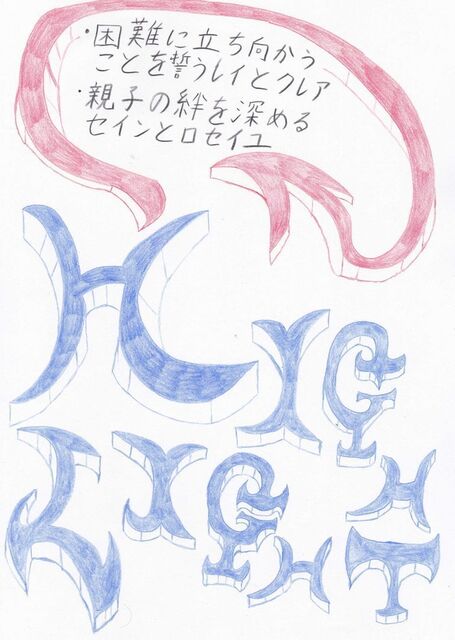 ・困難に立ち向かう
ことを誓うレイとクレア
・親子の絆を深める
セインとロセイユ
HIGH
LIGHT